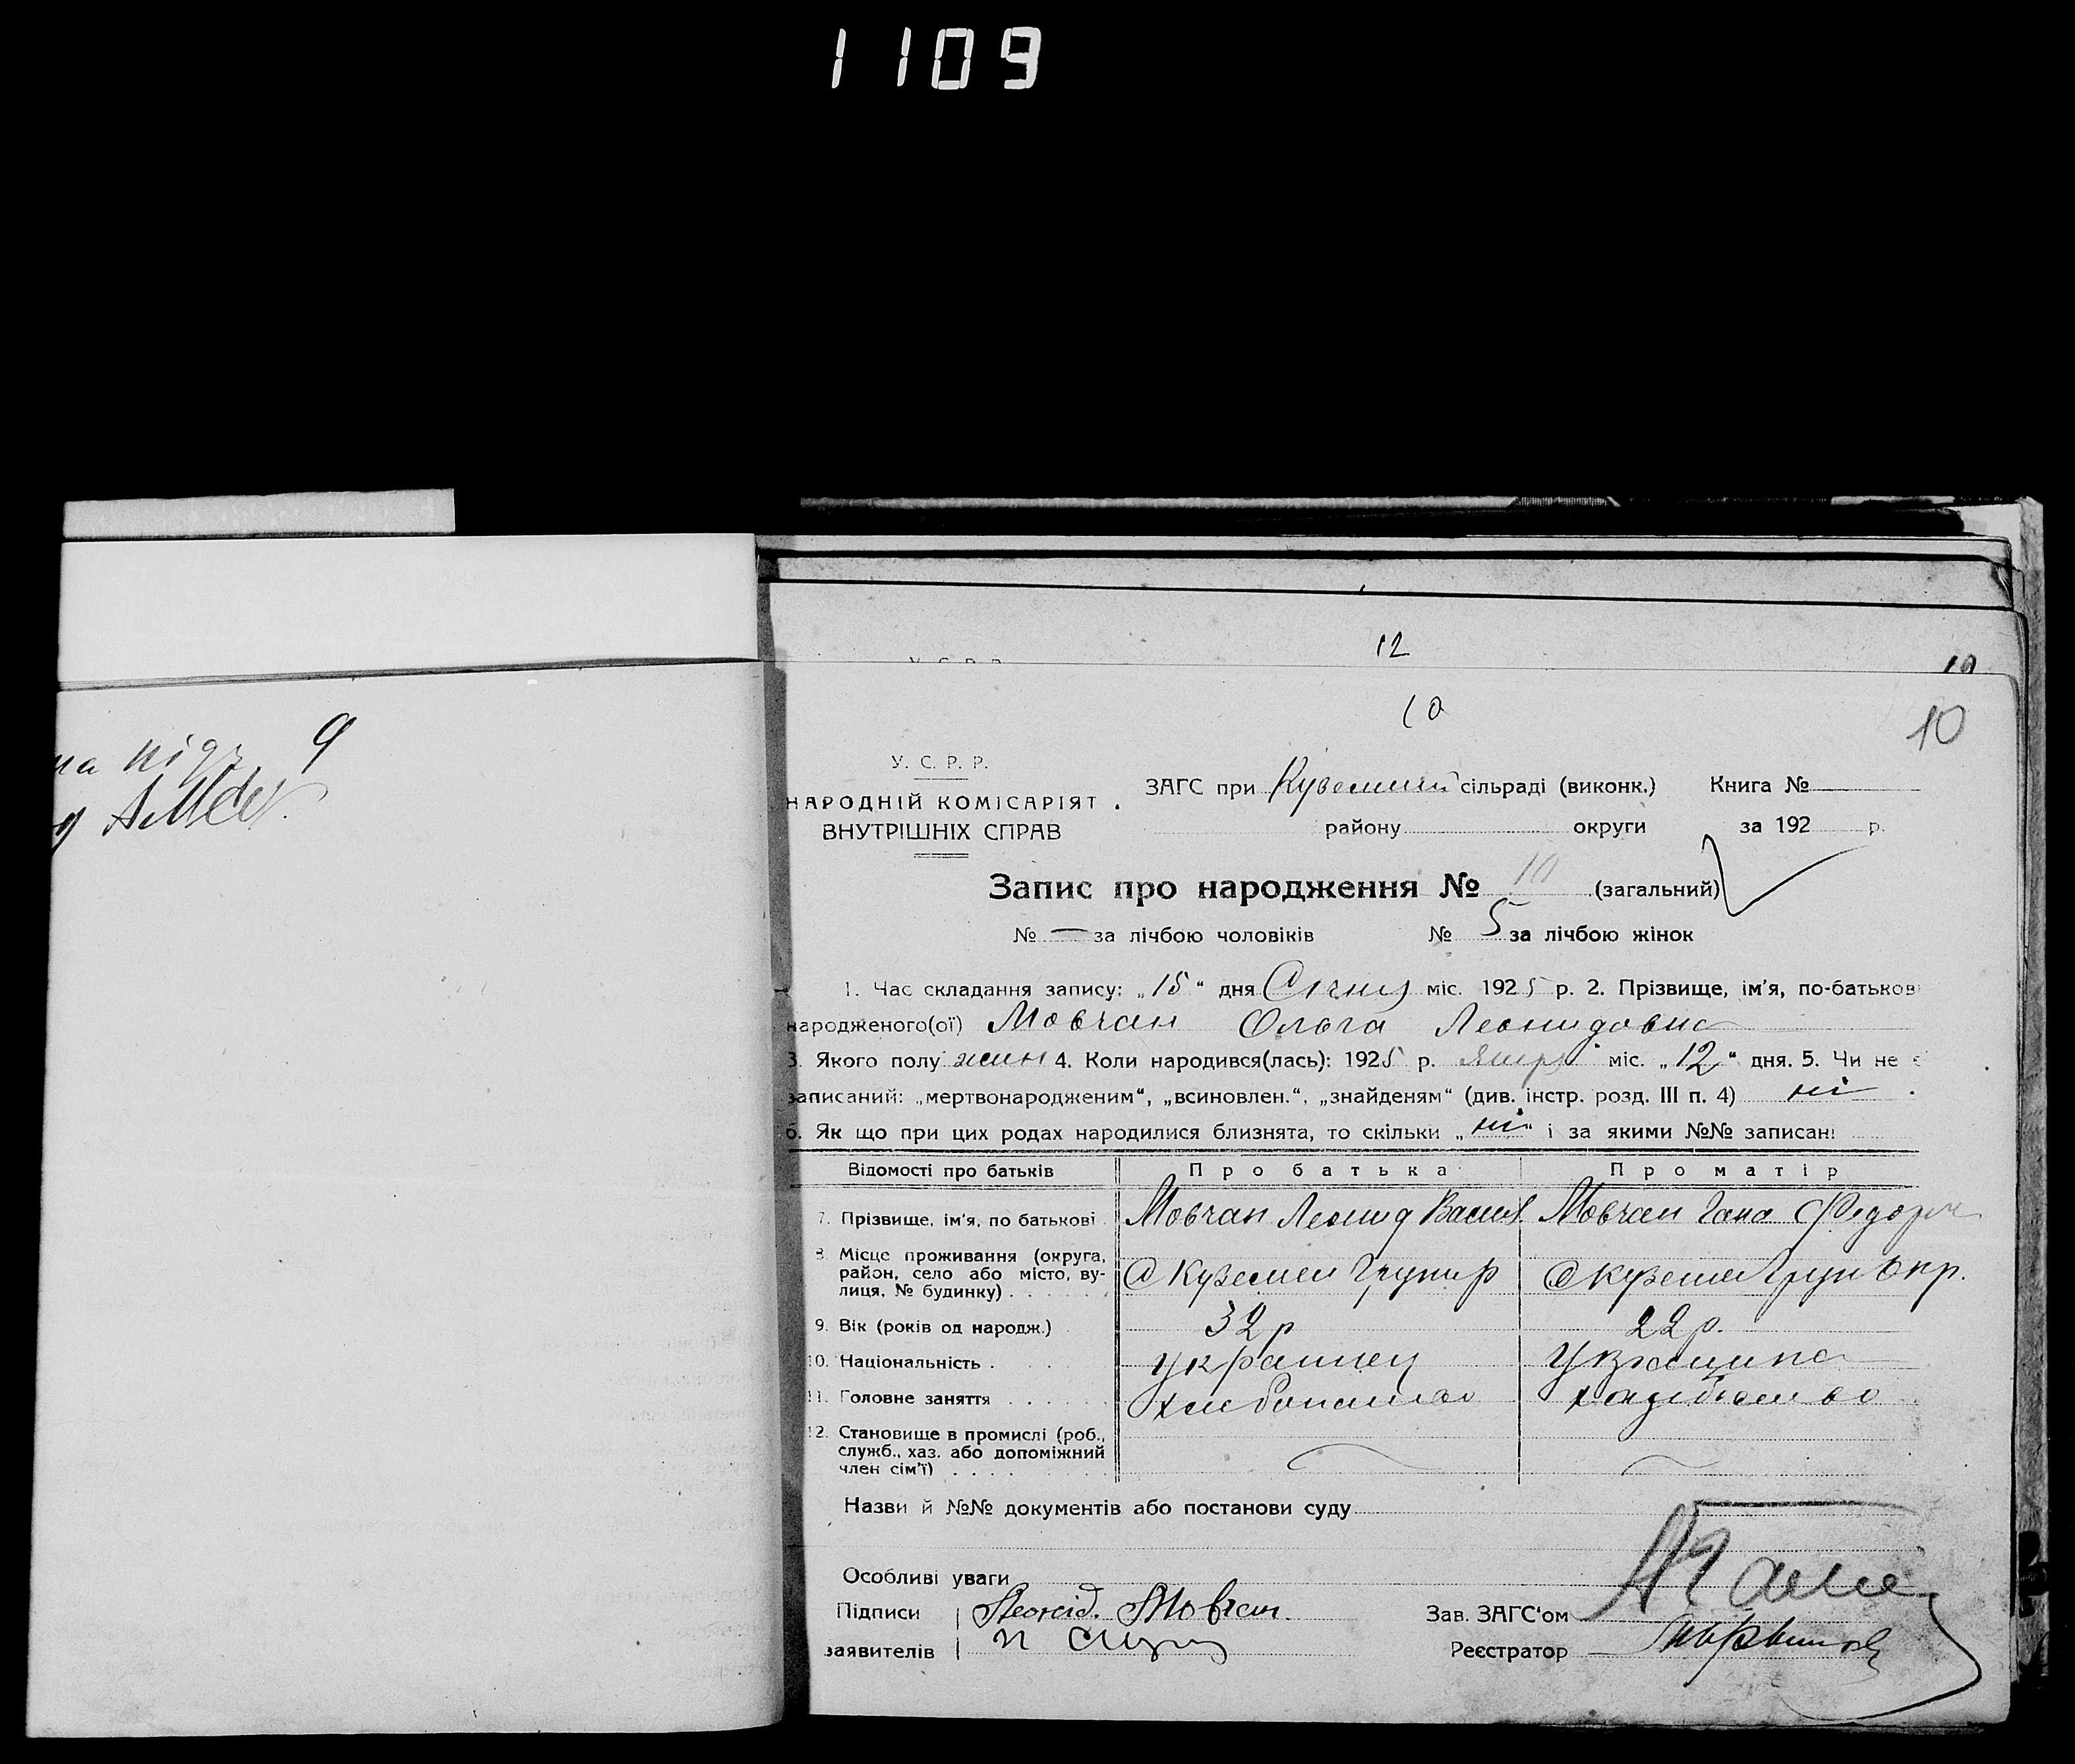 1109
12
10
10
10
9
на підп
У. С. Р. Р.
НАРОДНІЙ КОМІСАРІЯТ
ВНУТРІШНІХ СПРАВ
ЗАГС при сільраді (виконк.) Книга №
району округи за 192 р.
Запис про народження № 10 (загальний)
№ — за лічбою чоловіків № 5 за лічбою жінок
1. Час складання запису: „15“ дня Січня міс. 1925 р. 2. Прізвище, ім'я, по-батьков
народженого(ої) Мовчан Ольга Леонидовна
3. Якого полу жин 4. Коли народився(лась): 1925 р. міс. „12“ дня. 5. Чи не є
записаний: „мертвонародженим“, „всиновлен.“, „знайденям“ (див. інстр. розд. III п. 4) ні
6. Як що при цих родах народилися близнята, то скільки „ні“ і за якими №№ записані
Відомості про батьків Про батька Про матір
7. Прізвище, ім'я, по батькові Мовчан Леонид Васил Мовчан Гана Федор
8. Місце проживання (округа,
район, село або місто, ву-
лиця, № будинку)
9. Вік (років од народж.) 32 р 22 р.
10. Національність . украинец
11. Головне заняття
12. Становище в промислі (роб.,
служб., хаз. або допоміжний
член сім'ї)
Назви й №№ документів або постанови суду
Особливі уваги
Підписи Леонід. Мовчан.
заявителів
Зав. ЗАГС'ом
Реєстратор